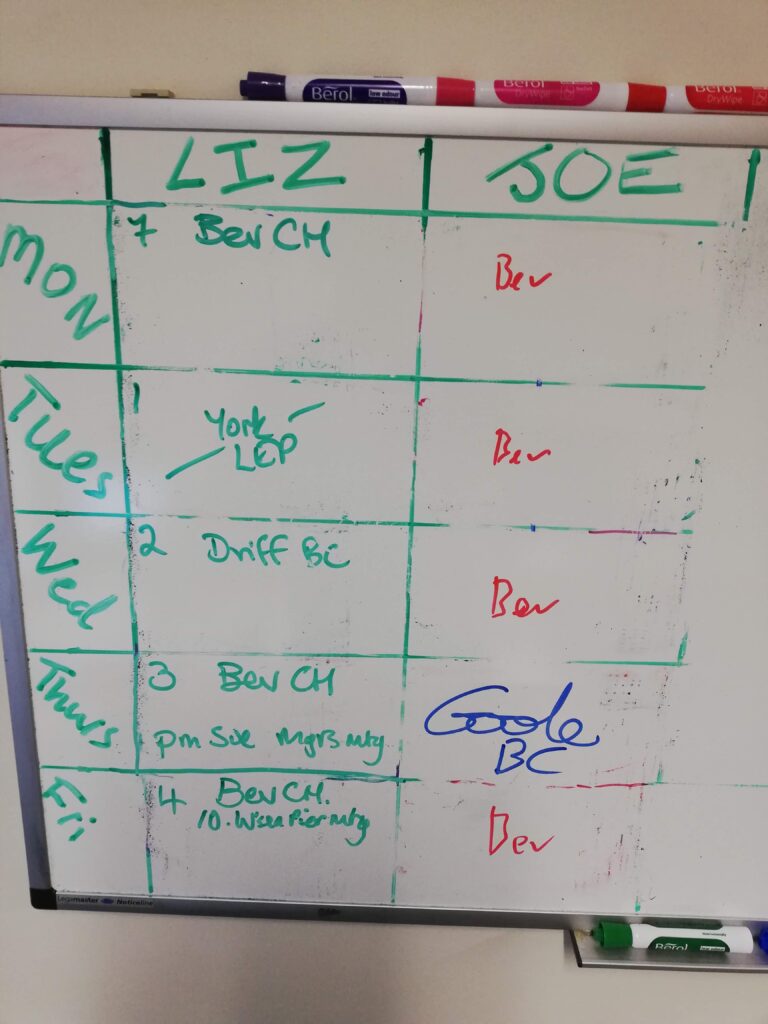 Berol
low odour
Berol
DryWipe
Berol
DryWipe
LIZ
JOE
MON
7 Bev CH
Bev
Tues
1
York
LEP
Bev
Wed
2 Driff BC
Bev
Thurs
3 Bev CH
pm Sue Mgrs Mtg
Goole
BC
Fri
4 Bev CH.
10. Pier Mtg
Bev
Legamaster Noticeline
Berol